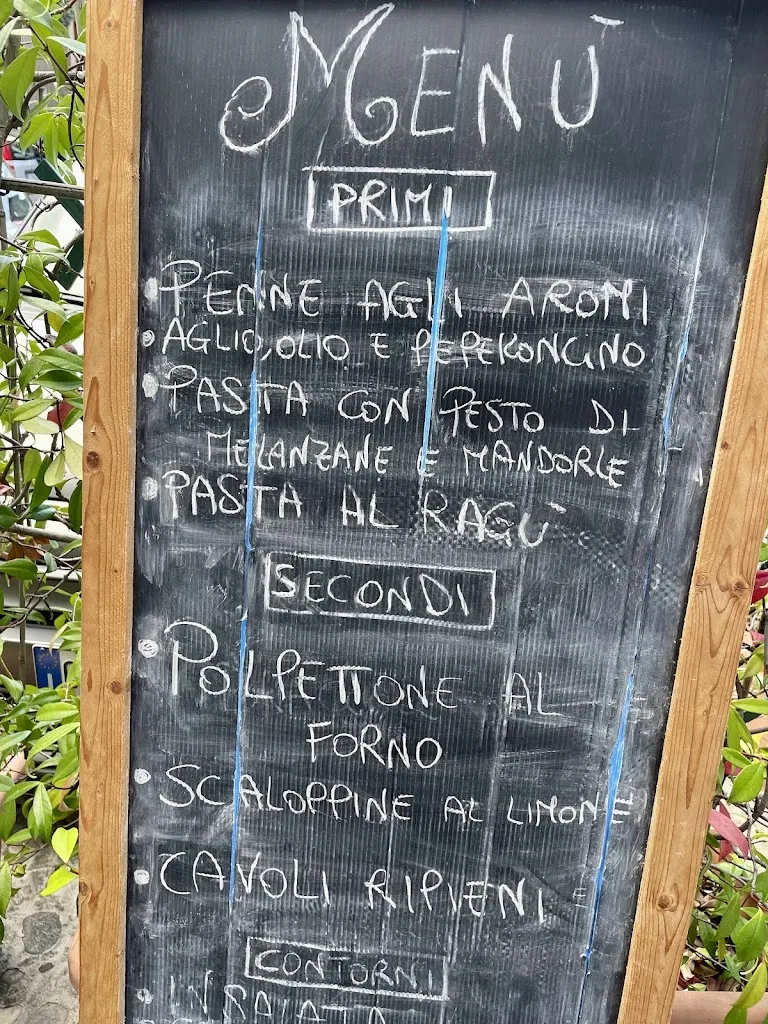 MENÙ
PRIMI
PENNE AGLI AROMI
AGLIO, OLIO E PEPERONCINO
PASTA CON PESTO DI
MELANZANE E MANDORLE
PASTA AL RAGÙ
SECONDI
POLPETTONE AL
FORNO
SCALOPPINE AL LIMONE
CAVOLI RIPIENI
CONTORNI
INSALATA